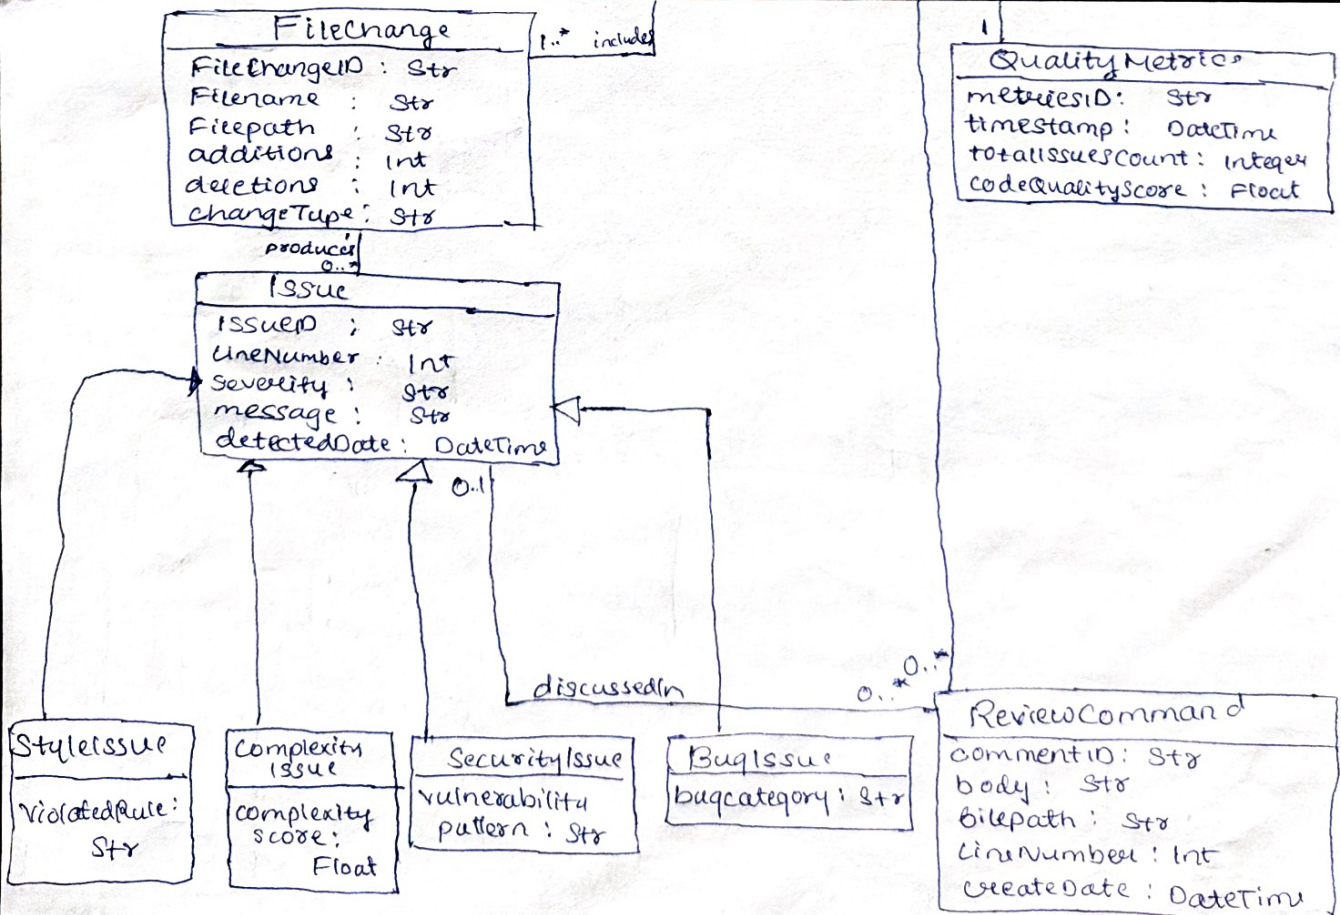 FileChange
1..* includes
FileChangeID : Str
Filename : Str
Filepath : Str
additions : Int
deletions : Int
changeType : Str
1
QualityMetrics
metricsID : Str
timestamp : DateTime
totalIssuesCount : Integer
codeQualityScore : Float
produces
0..*
Issue
IssueID : Str
LineNumber : Int
Severity : Str
message : Str
detectedDate : DateTime
0..1
discussedIn
0..*
0..*
StyleIssue
ViolatedRule :
Str
Complexity
Issue
complexity
score :
Float
SecurityIssue
vulnerability
pattern : Str
BugIssue
bugcategory : Str
ReviewCommand
commentID : Str
body : Str
filepath : Str
LineNumber : Int
createDate : DateTime